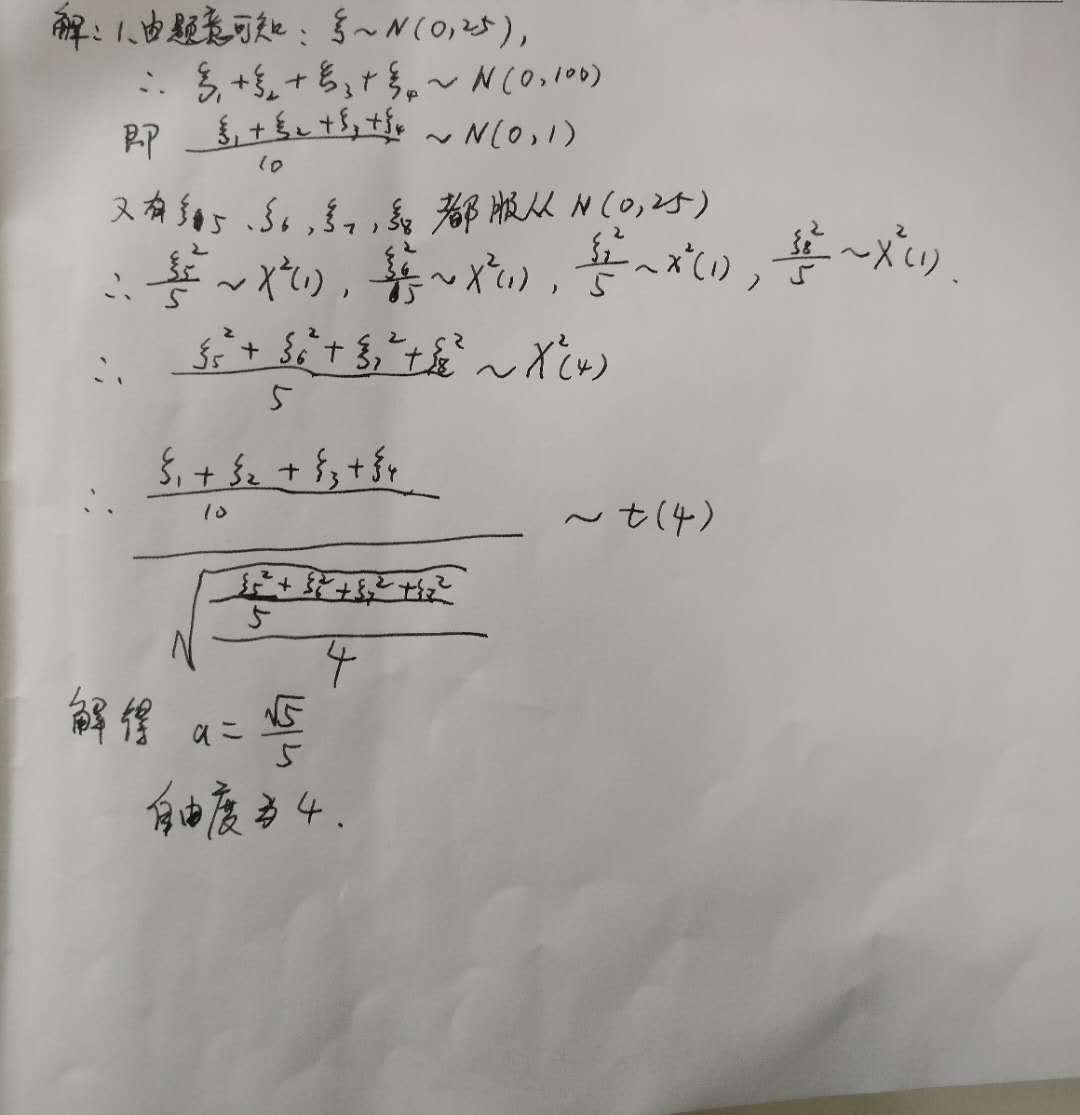 解：1、由题意可知：ξ~N(0,25),
∴ ξ₁+ξ₂+ξ₃+ξ₄~N(0,100)
即 (ξ₁+ξ₂+ξ₃+ξ₄)/10 ~N(0,1)
又有ξ₅、ξ₆,ξ₇,ξ₈都服从N(0,25)
∴ ξ₅²/5 ~X²(1), ξ₆²/5 ~X²(1), ξ₇²/5 ~X²(1), ξ₈²/5 ~X²(1).
∴ (ξ₅²+ξ₆²+ξ₇²+ξ₈²)/5 ~X²(4)
∴ ((ξ₁+ξ₂+ξ₃+ξ₄)/10)/√(((ξ₅²+ξ₆²+ξ₇²+ξ₈²)/5)/4) ~t(4)
解得 a=√5/5
自由度为4.